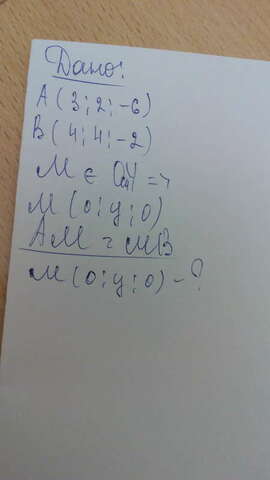 Дано:
A (3; 2; -6)
B (4; 4; -2)
M ∈ OY =>
M (0; y; 0)
AM = MB
M (0; y; 0) - ?